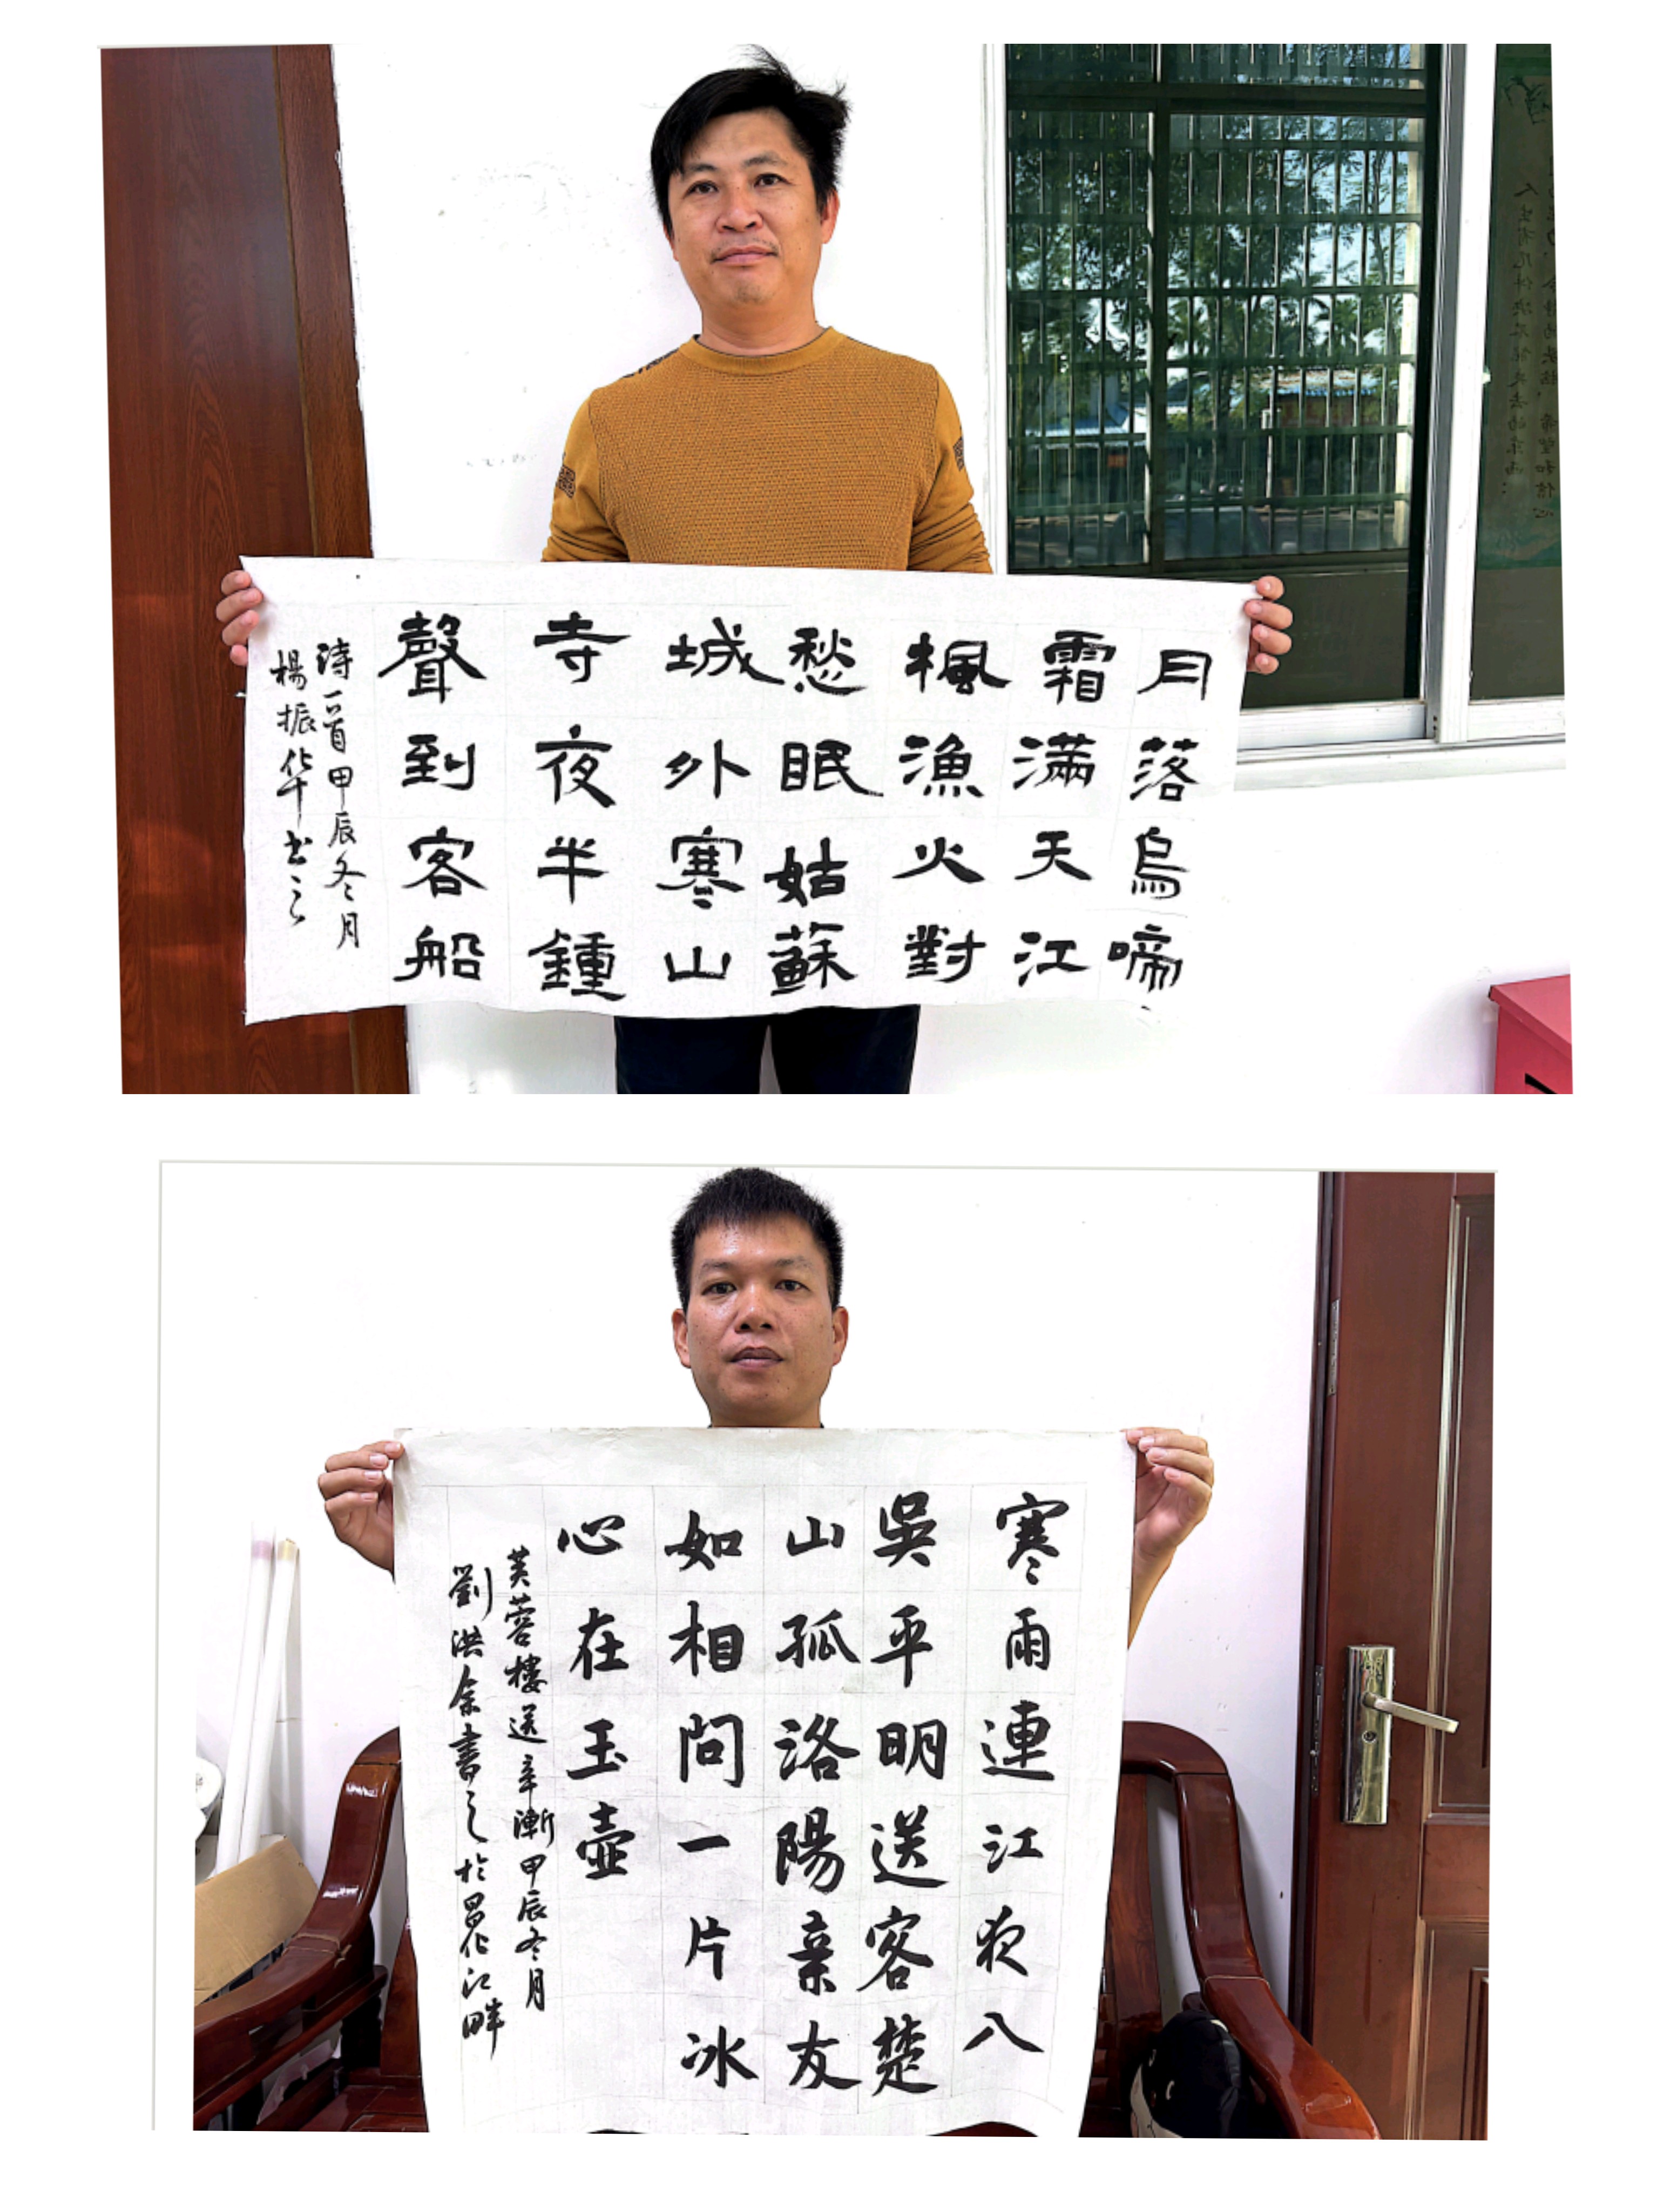 月落烏啼
霜滿天江
楓漁火對
愁眠姑蘇
城外寒山
寺夜半鍾
聲到客船
詩一首甲辰冬月
楊振华书之
寒雨連江夜入
吳平明送客楚
山孤洛陽亲友
如相問一片冰
心在玉壺
芙蓉樓送辛漸甲辰冬月
劉洪余書之於昌化江畔